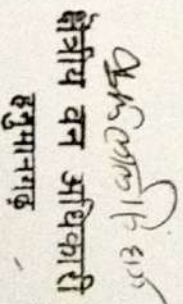 क्षेत्रीय वन अधिकारी
हनुमानगढ़